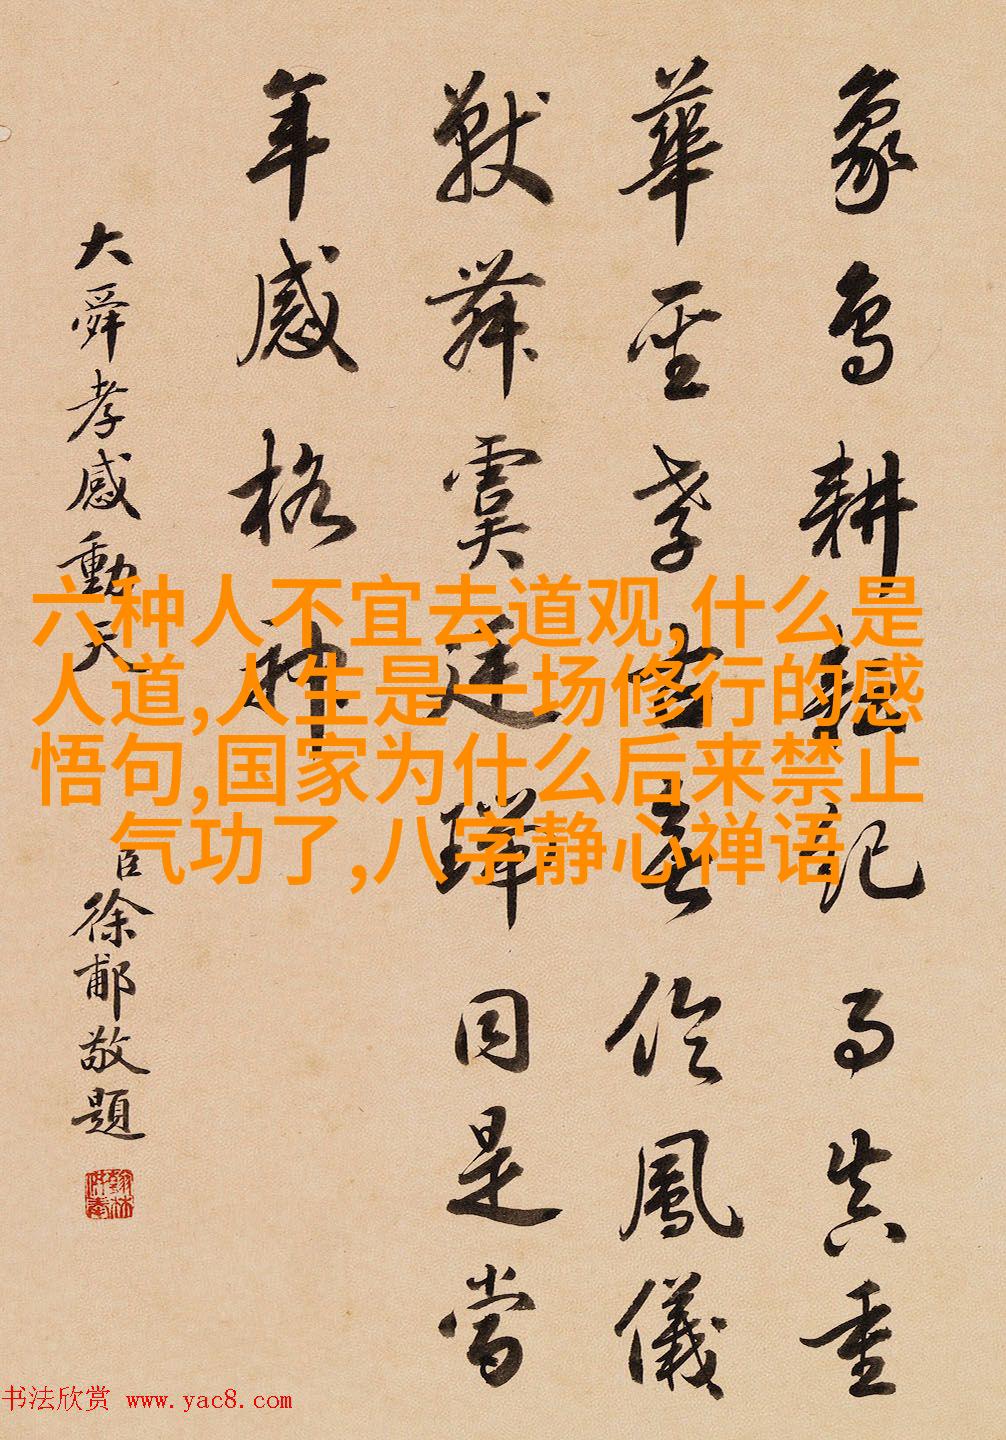 象鳥耕耘記得真重
華至孝
獸舞虞廷
同是當
年感格神
大舜孝感動天
臣徐郙敬題
六种人不宜去道观,什么是
人道,人生是一场修行的感
悟句,国家为什么后来禁止
气功了,八字静心禅语
书法欣赏 www.yac8.com